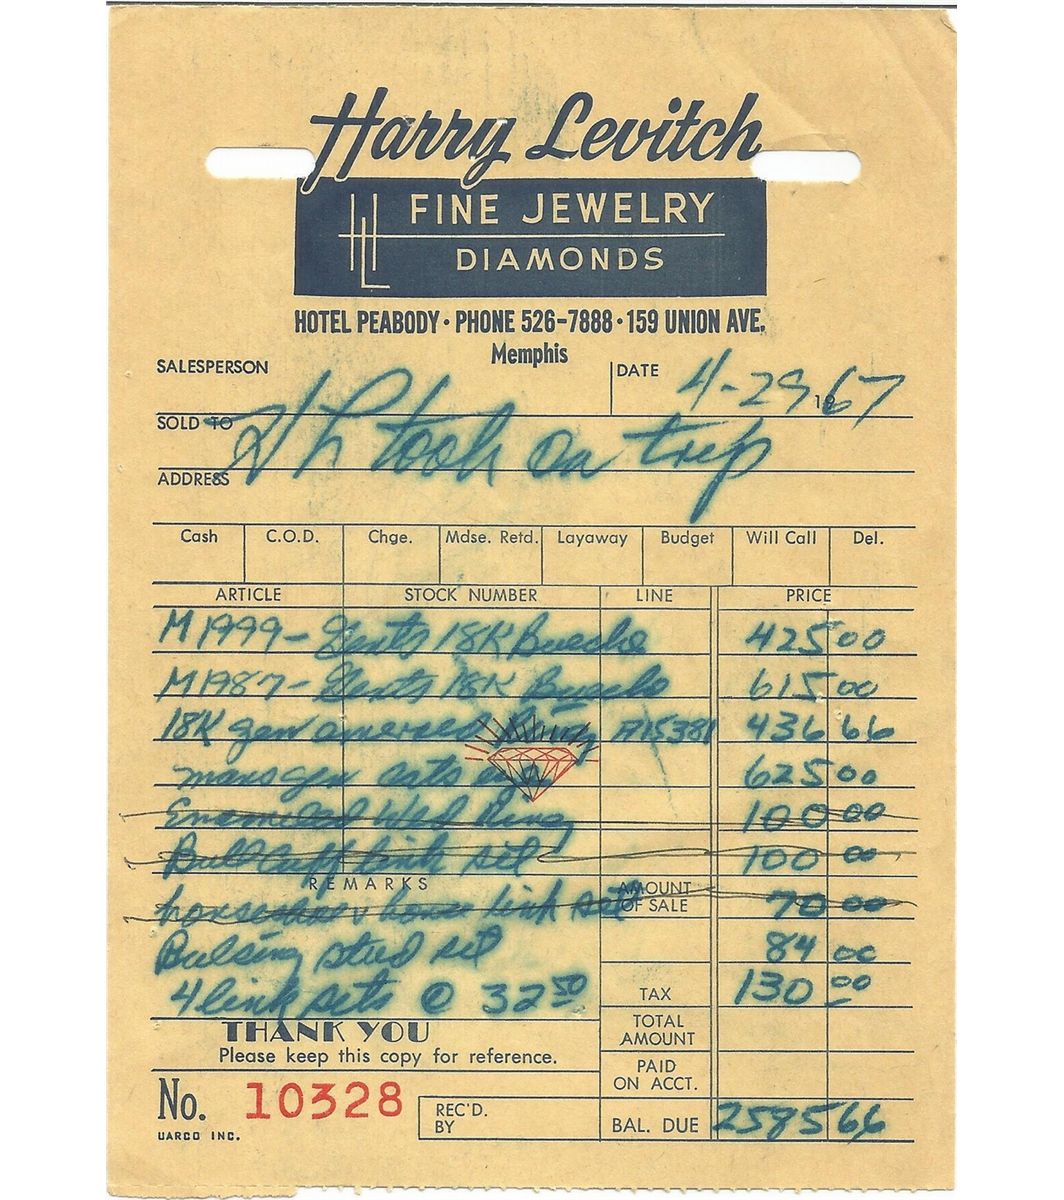 Harry Levitch
HL FINE JEWELRY
DIAMONDS
HOTEL PEABODY · PHONE 526-7888 · 159 UNION AVE.
Memphis
SALESPERSON DATE 4-29 1967
SOLD TO HL took on trip
ADDRESS
Cash C.O.D. Chge. Mdse. Retd. Layaway Budget Will Call Del.
ARTICLE STOCK NUMBER LINE PRICE
M1999- Gents 18K Bueche 425 00
M1987- Gents 18K Bueche 615 00
18K gen emerald Ring A15381 436 66
625 00
Enameled Wed Ring 100 00
Bull Cuff link set 100 00
REMARKS AMOUNT OF SALE
horseshoe & horse link set 70 00
stud set 84 00
4 link sets @ 32 50 TAX 130 00
THANK YOU TOTAL AMOUNT
Please keep this copy for reference.
PAID ON ACCT.
No. 10328 REC'D. BY BAL. DUE 2585 66
UARCO INC.